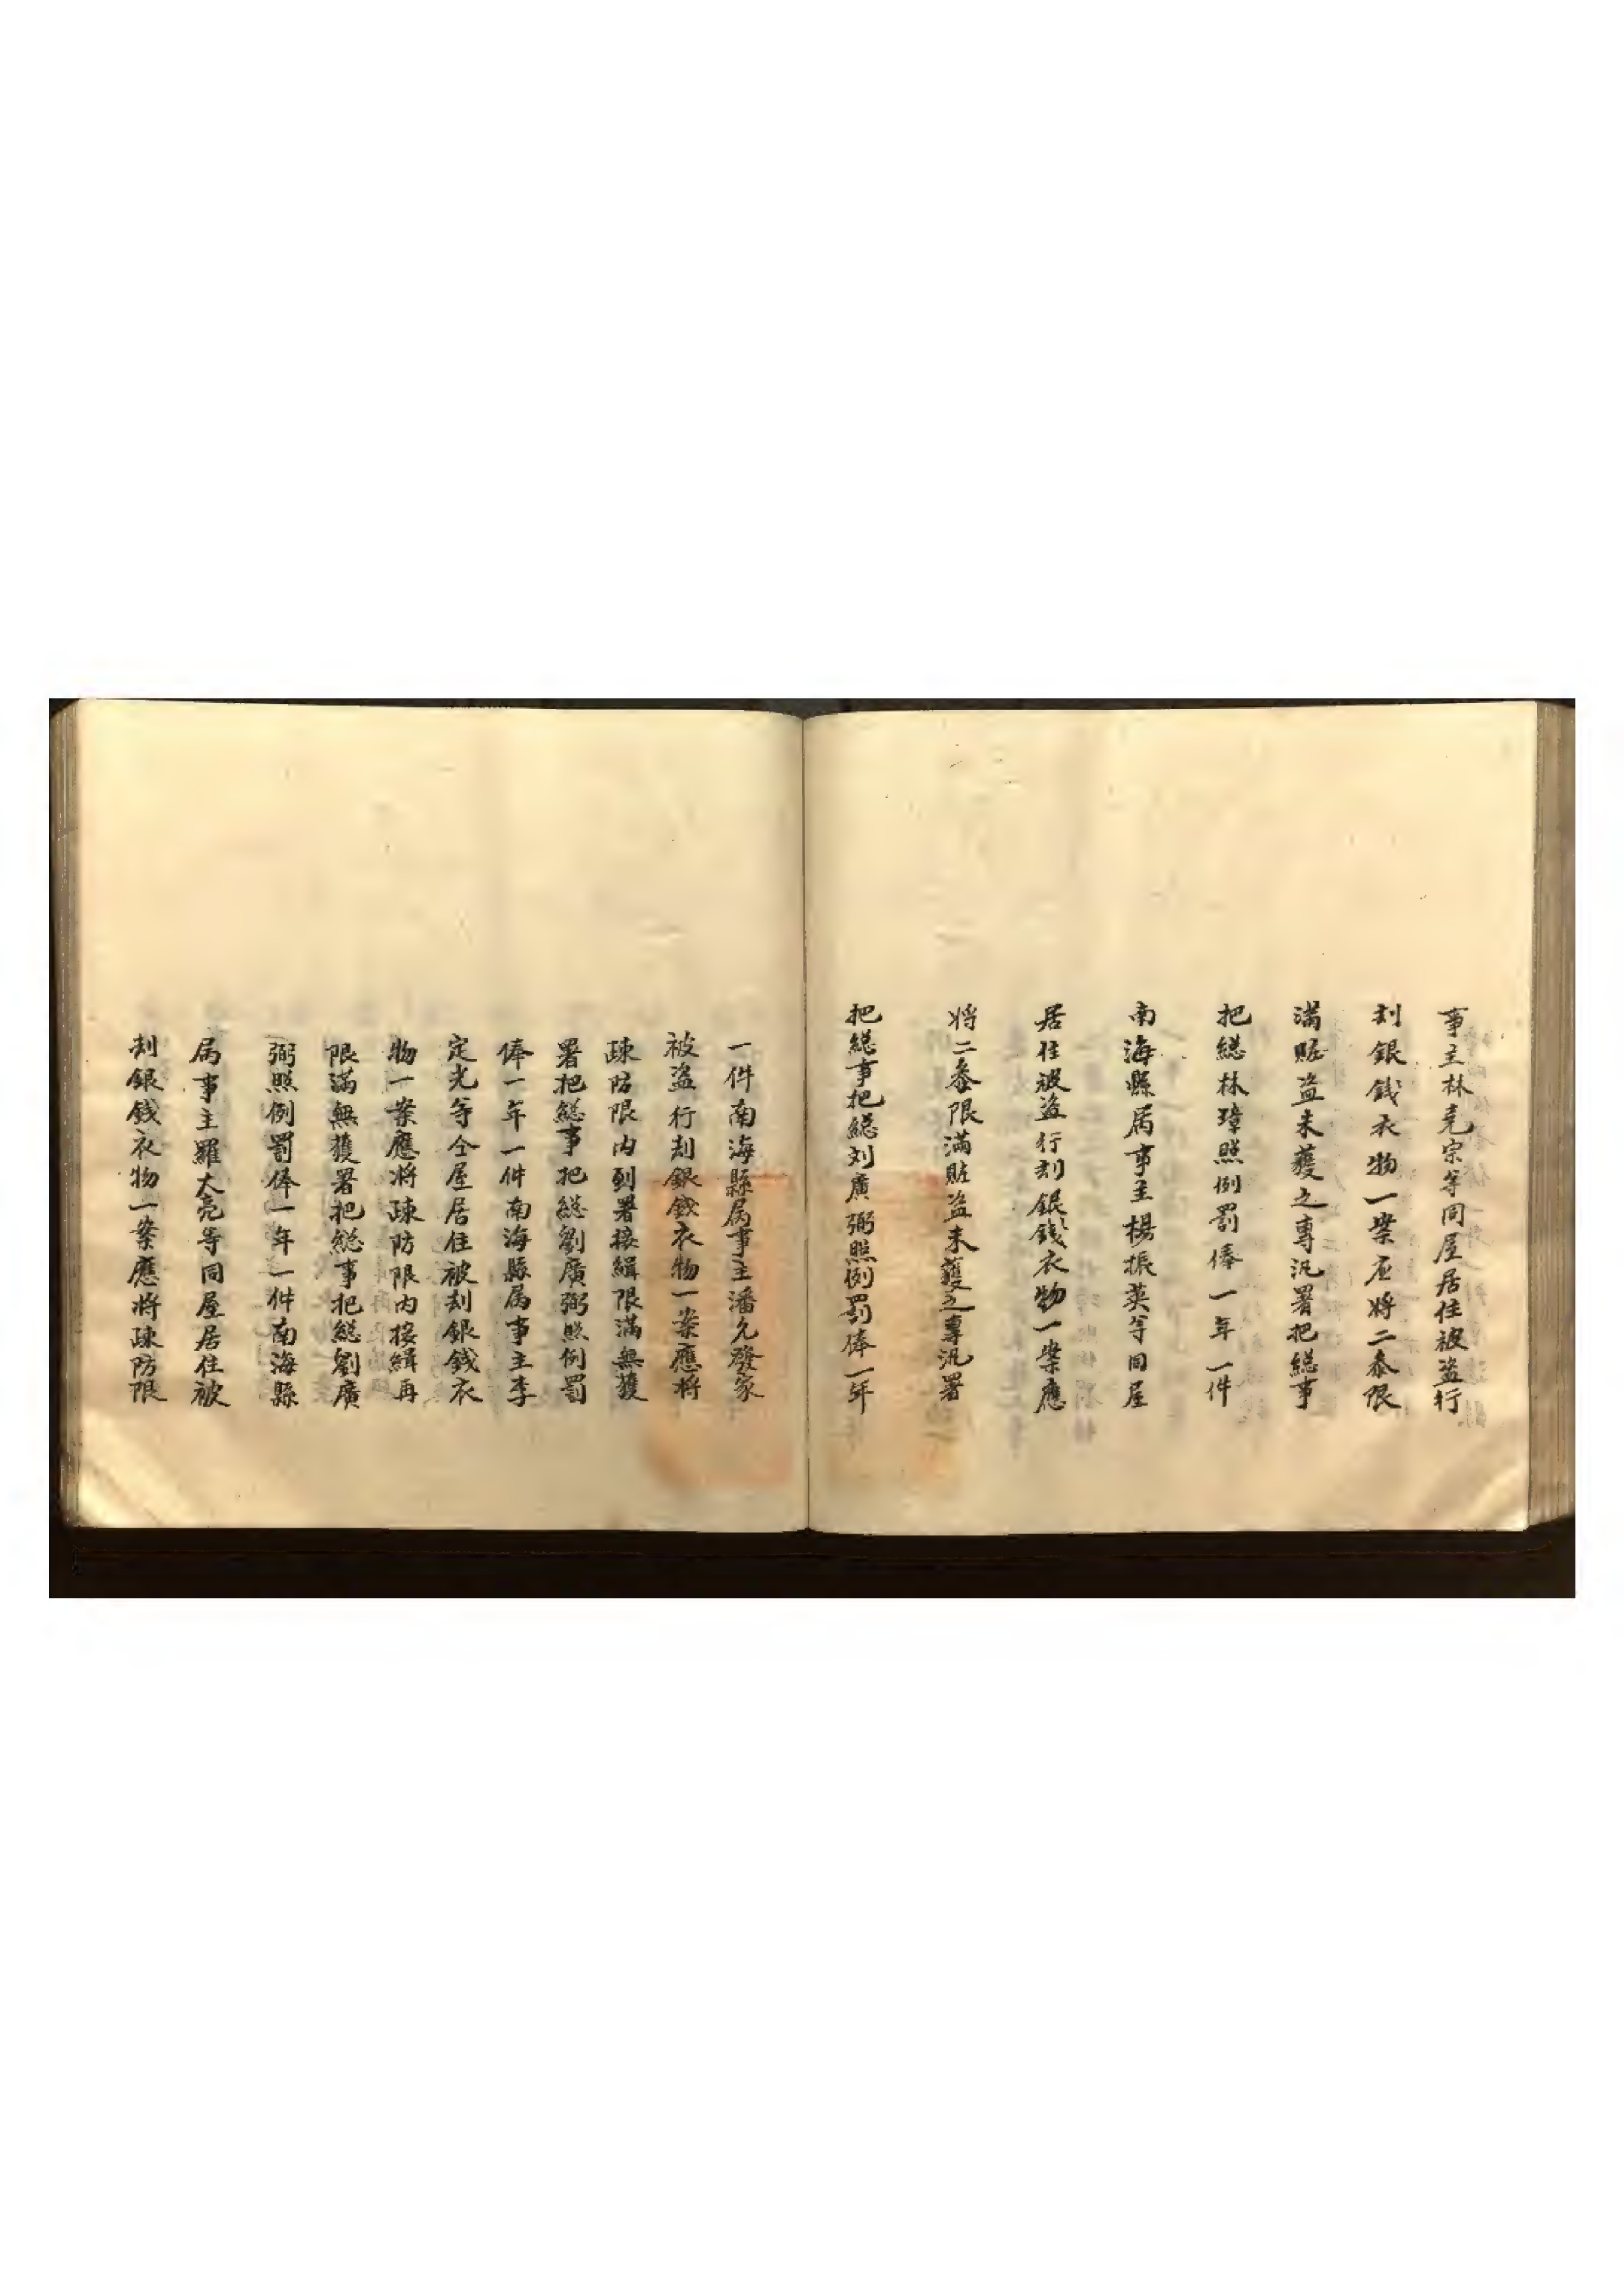 事主林堯宗等同屋居住被盗行
刦銀錢衣物一案应将二叅限
滿賍盗未獲之專汛署把総事
把総林璋照例罰俸一年一件
南海縣属事主楊振英等同屋
居住被盗行刦銀錢衣物一案應
将二叅限滿賍盗未獲之專汛署
把総事把総刘廣弼照例罰俸一年
一件南海縣属事主潘允發家
被盗行刦銀錢衣物一案應将
疎防限内到署接緝限滿無獲
署把総事把総劉廣弼照例罰
俸一年一件南海縣属事主李
定光等仝屋居住被刦銀錢衣
物一案應将疎防限内接緝再
限滿無獲署把総事把総劉廣
弼照例罰俸一年一件南海縣
属事主羅大亮等同屋居住被
刦銀錢衣物一案應将疎防限